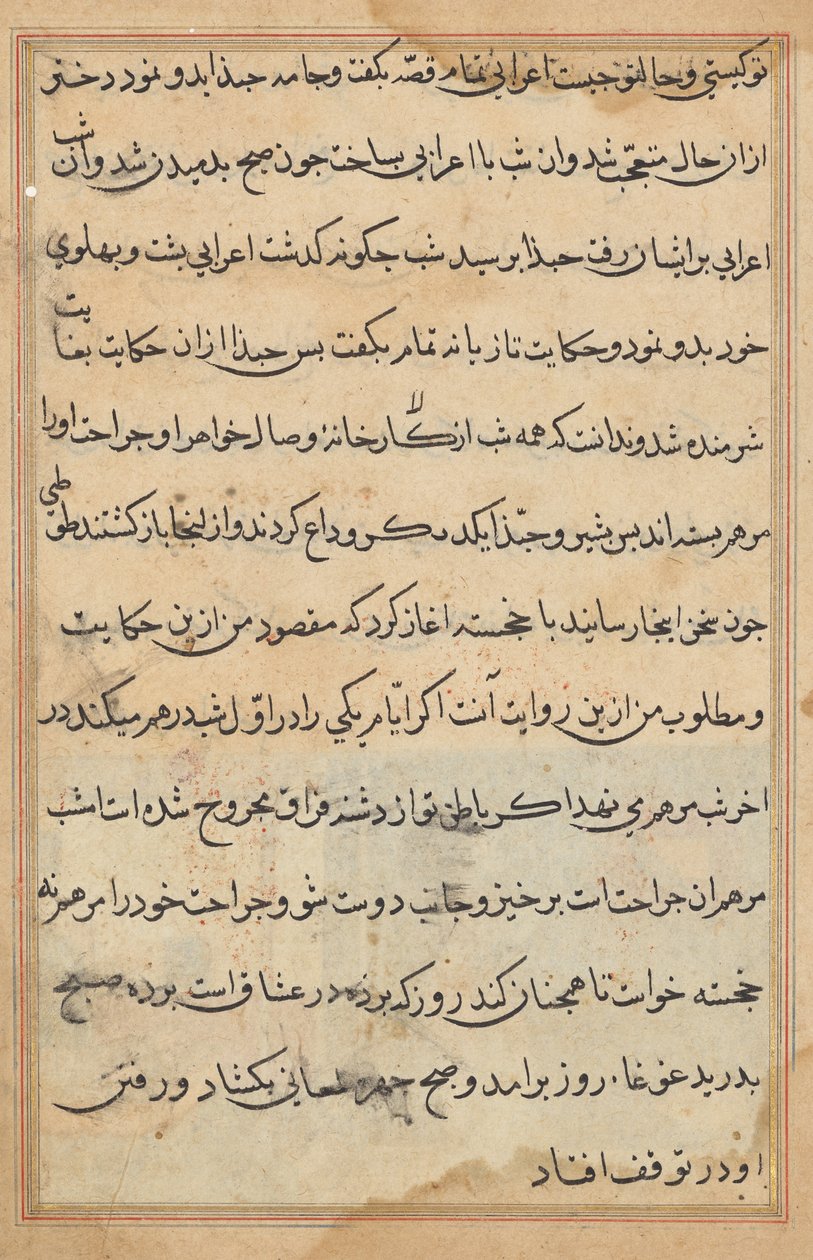 توکیستی و حالتو جیست اعرابی تمام قصّه بکفت و جامه جبذا بدو نمود دختر
ازان حال متعجّب شد وان شب با اعرابی بساخت جون صبح بدمیدن شد وان شب
اعرابی برایشان رفت جبذا برسید شب جکونه کدشت اعرابی بشت و بهلوی
خود بدو نمود و حکایت تازیانه تمام بکفت بس جبذا ازان حکایت بغایت
شرمنده شد و ندانست که همه شب از کارخانهٔ وصال خواهر او جراحت اورا
مرهم بسته اند بس بشیر و جبّذا یکدیکر وداع کردند و از اینجا باز کشتند طوطی
جون سخن اینجا رسانید با خجسته اغاز کرد که مقصود من ازین حکایت
و مطلوب من ازین روایت آنست اکر ایّام یکی را در اوّل شب درهم میکند در
اخر شب مرهم می نهد اکر باطن تو از دشنه فراق مجروح شده است امشب
مرهم ان جراحت است برخیز و جانب دوست شو و جراحت خود را مرهم نه
خجسته خواست تا همجنان کند روز که برده در عشاق است برده صبح
بدرید غوغاء روز برامد و صبح جهره لمعانی بکشاد و رفتن
او در توقف افتاد